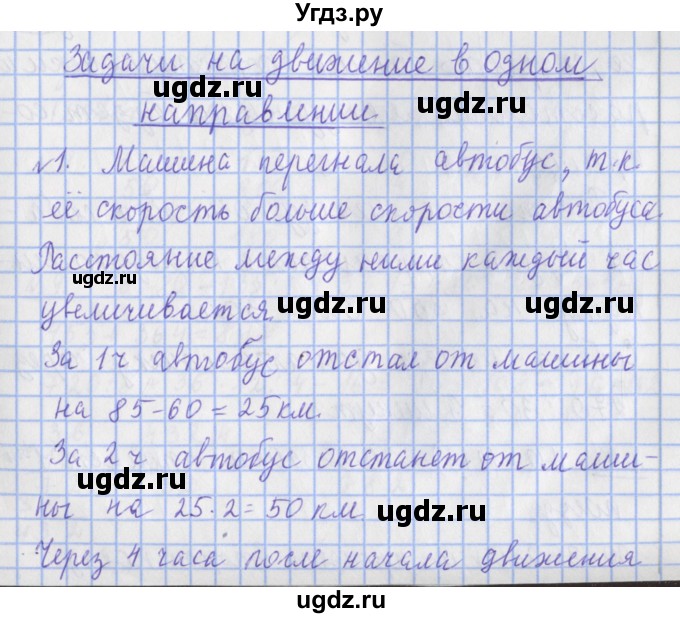 Угдз.ру
Задачи на движение в одном
направлении
№1. Машина перегнала автобус, т.к.
её скорость больше скорости автобуса.
Расстояние между ними каждый час
увеличивается.
За 1 ч автобус отстал от машины
на 85-60=25км.
За 2 ч автобус отстанет от маши-
ны на 25·2=50 км
Через 4 часа после начала движения
ugdz.ru
ugdz.ru
ugdz.ru
ugdz.ru
ugdz.ru
ugdz.ru
ugdz.ru
ugdz.ru
ugdz.ru